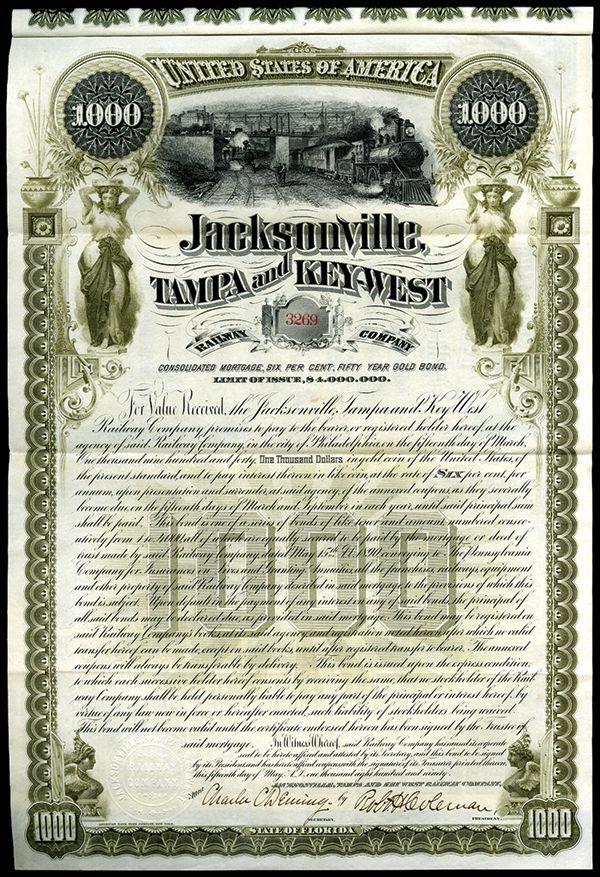 UNITED STATES OF AMERICA
1000 1000
Jacksonville,
TAMPA and KEY-WEST
3269
RAILWAY COMPANY
CONSOLIDATED MORTGAGE, SIX PER CENT, FIFTY YEAR GOLD BOND.
LIMIT OF ISSUE, $4,000,000.
For Value Received, the Jacksonville, Tampa and Key West
Railway Company promises to pay to the bearer, or registered holder hereof, at the
agency of said Railway Company, in the city of Philadelphia, on the fifteenth day of March,
One thousand nine hundred and forty, One Thousand Dollars in gold coin of the United States, of
the present standard, and to pay interest thereon in like coin, at the rate of SIX per cent. per
annum, upon presentation and surrender, at said agency, of the annexed coupons, as they severally
become due, on the fifteenth days of March and September in each year, until said principal sum
shall be paid. This bond is one of a series of bonds of like tenor and amount, numbered consec-
utively from 1 to 4000, all of which are equally secured to be paid by a mortgage or deed of
trust made by said Railway Company, dated May 15th, A.D. 1890, conveying to The Pennsylvania
Company for Insurances on Lives and Granting Annuities, all the franchises, railways, equipment
and other property of said Railway Company, included in said mortgage, to the provisions of which this
bond is subject. Upon default in the payment of any interest on any of said bonds, the principal of
all said bonds may be declared due, as provided in said mortgage. This bond may be registered on
said Railway Company's books, at its said agency, and registration noted hereon, after which no valid
transfer hereof can be made, except on said books, until after registered transfer to bearer. The annexed
coupons will always be transferable by delivery. This bond is issued upon the express condition,
to which each successive holder hereof consents by receiving the same, that no stockholder of the Rail-
way Company shall be held personally liable to pay any part of the principal or interest hereof, by
virtue of any law now in force or hereafter enacted, such liability of stockholders being waived.
This bond will not become valid until the certificate endorsed hereon has been signed by the Trustee of
said mortgage. In Witness Whereof, said Railway Company has caused its corporate
seal to be hereto affixed and attested by its Secretary, and this bond to be signed
by its President, and has hereto affixed coupons with the signature of its Treasurer printed thereon,
This fifteenth day of May, A.D. one thousand eight hundred and ninety.
JACKSONVILLE, TAMPA AND KEY WEST RAILWAY COMPANY,
Attest Charles C Deming by Robt H Coleman
SECRETARY. PRESIDENT.
AMERICAN BANK NOTE COMPANY, NEW YORK.
1000 STATE OF FLORIDA 1000